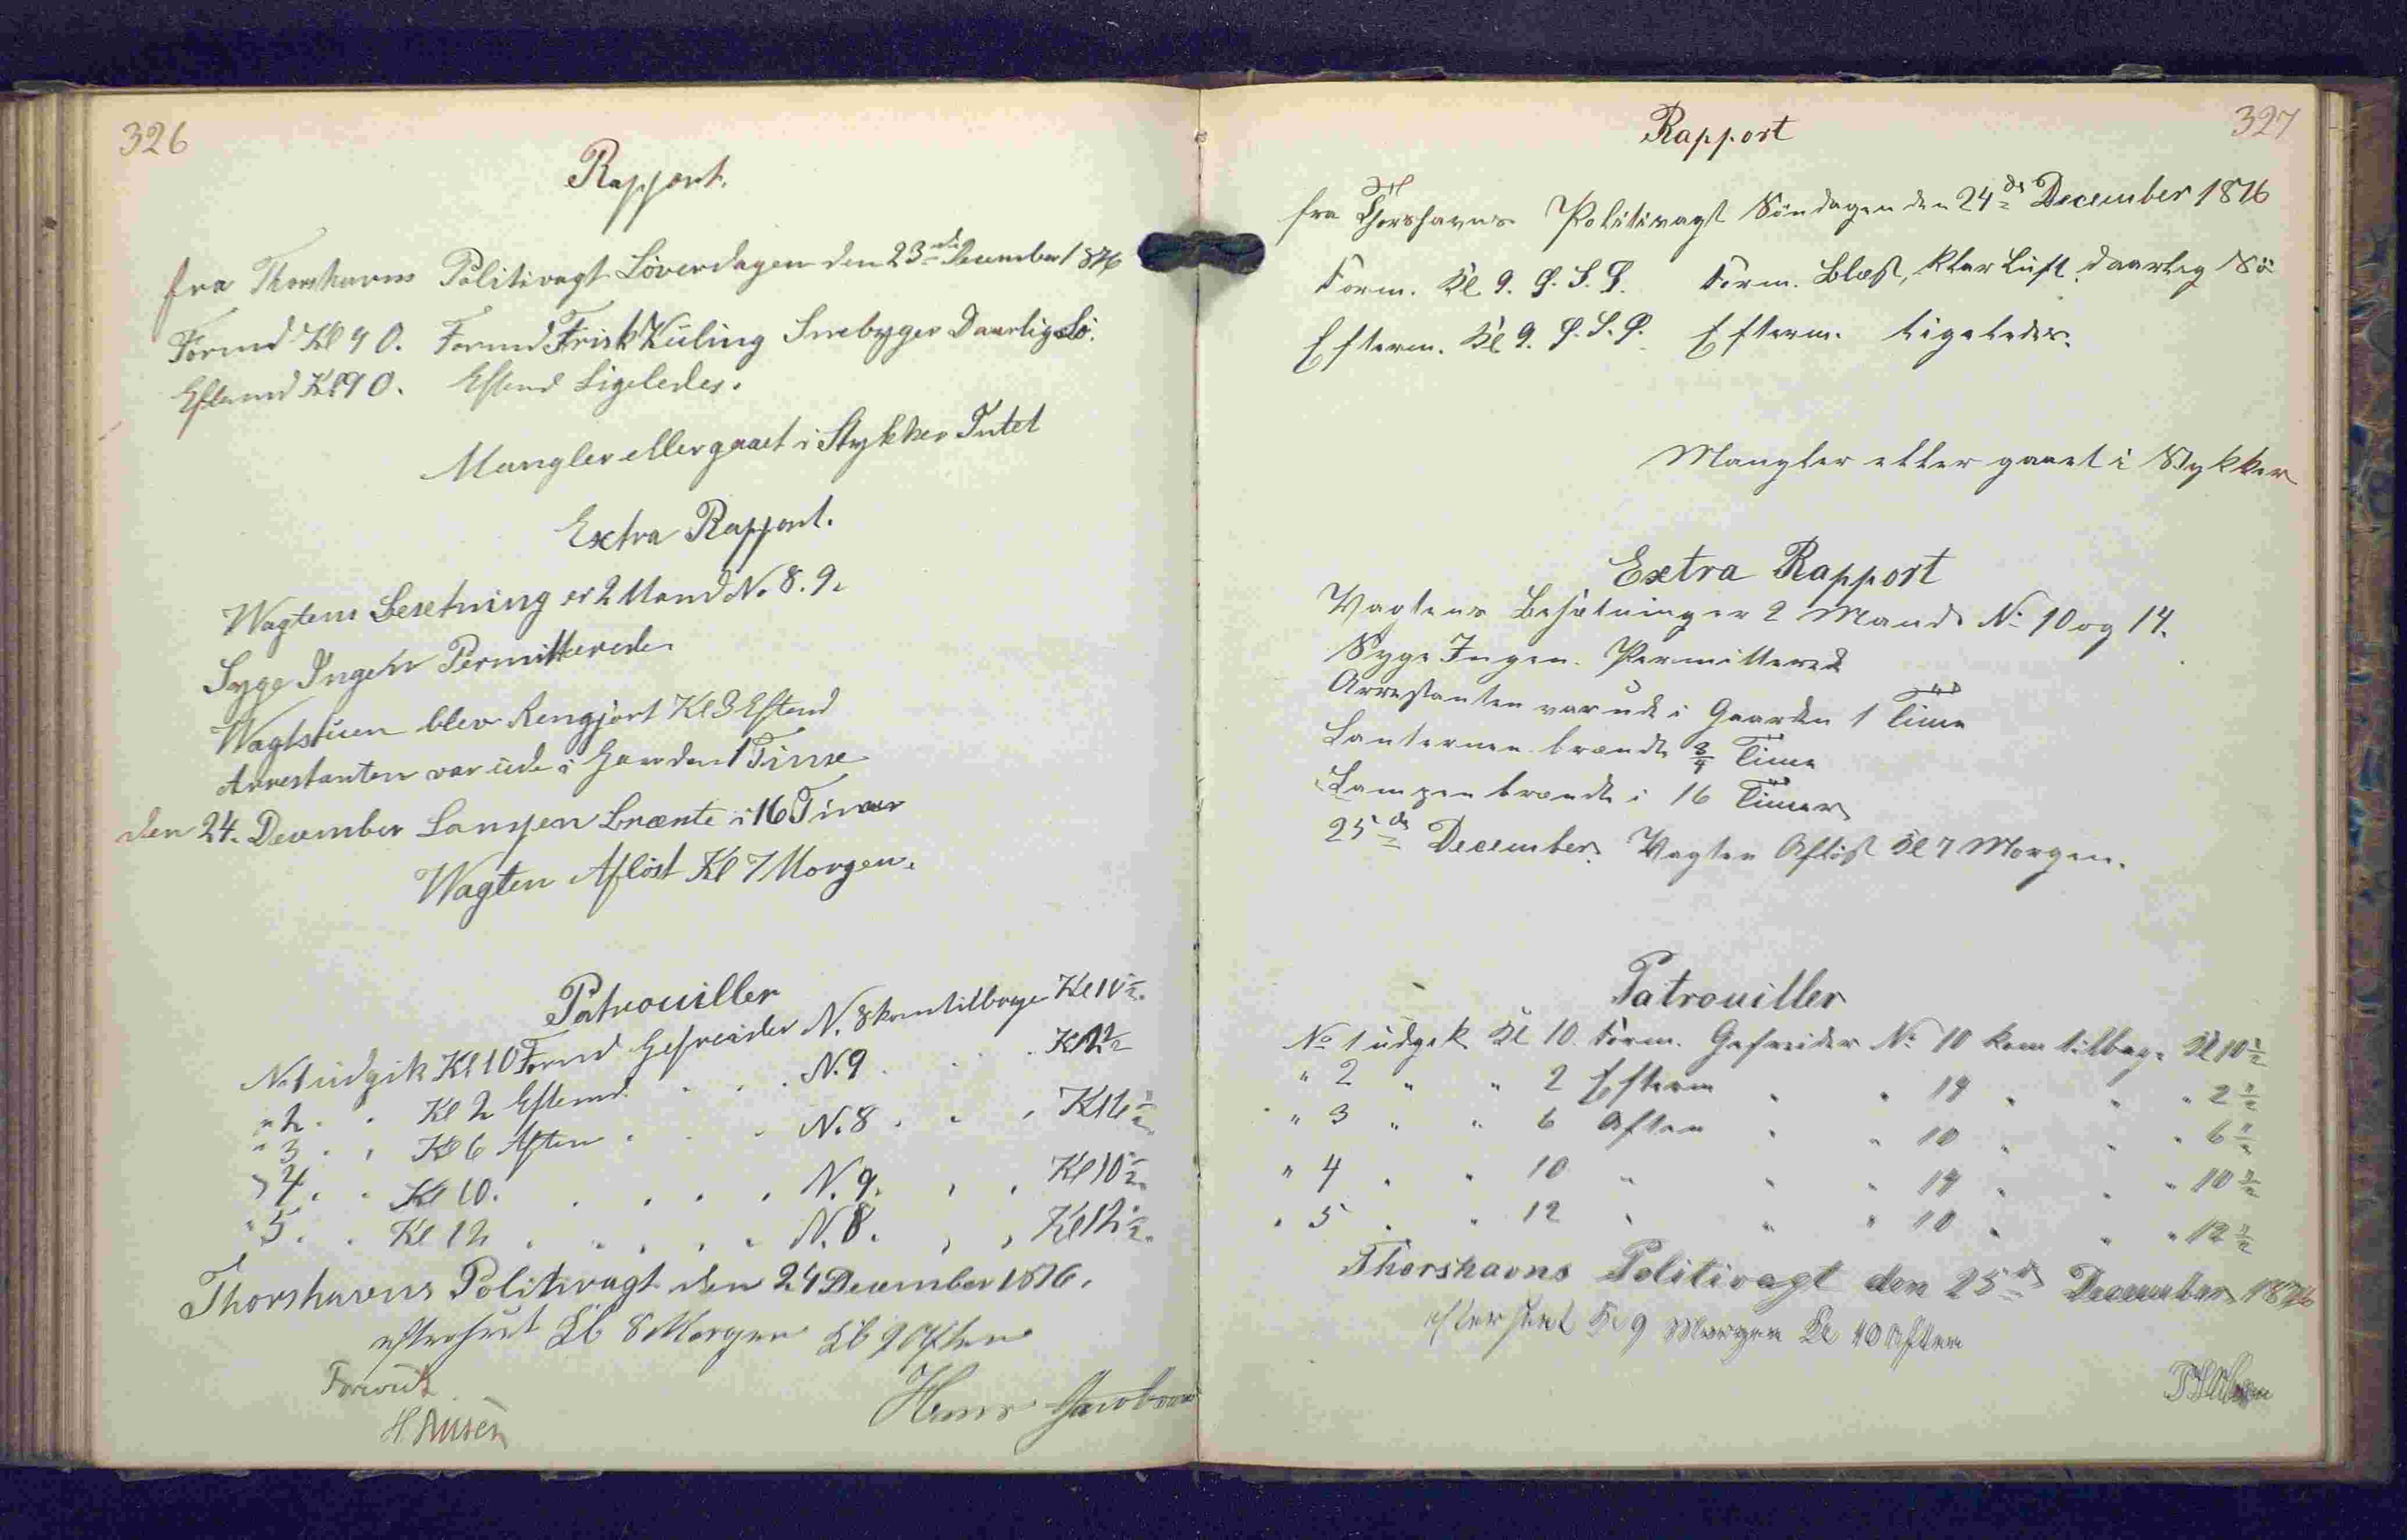 326
Rapport.
fra Thorshavns Politivagt Löverdagen den 23de December 1876
Formd Kl 9 O. Formd Frisk Kuling Snebyger Daarlig Sö.
Eftermd Kl 9 O. Eftmd Ligeledes.
Mangler eller gaaet i Stykker Intet
Extra Rapport.
Wagtens Besetning er 2 Mand No 8. 9.
Syge Ingen Permitterede
Wagtstuen blev Rengjort Kl 3 Eftmd
Arrestanten var ude i Gaarden 1 Time
den 24. December Lampen Brænte i 16 Timer
Wagten Aflöst Kl 7 Morgen.
Patrouiller
No 1 udgik Kl 10 Formd Gefreider N. 8 kom tilbage Kl 10 1/2
" 2 . . Kl 2 Eftermd. . . . N. 9 . . . Kl 2 1/2
" 3 . . Kl 6 Aften . . . N. 8 . . . Kl 6 1/2
" 4 . . Kl 10. . . . . N. 9. . . Kl 10 1/2
" 5 . . Kl 12 . . . . . N. 8. . . Kl 12 1/2
Thorshavns Politivagt den 24 December 1876.
efterseet Kl 8 Morgen Kl 9 Aften
Hans Jacobsen
327
Rapport
fra Thorshavns Politivagt Söndagen den 24de December 1876
Form. Kl 9. Ø. S. Ø. Form. Blæst, klar Luft, daarlig Sö
Efterm. Kl 9. Ø. S. Ø. Efterm. ligeledes.
Mangler eller gaaet i Stykker
Extra Rapport
Vagtens Besætning er 2 Mand No 10 og 14.
Syge Ingen. Permitteret
Arrestanten var ude i Gaarden 1 Time
Lanternen brændt 3/4 Time
Lampen brændt i 16 Timer
25de December. Vagten Aflöst Kl 7 Morgen.
Patrouiller
No 1 udgik Kl 10 Form. Gefreider No 10 kom tilbage Kl 10 1/2
" 2 " " 2 Efterm " " 14 " " " 2 1/2
" 3 " " 6 Aften " " 10 " " " 6 1/2
" 4 " " 10 " " " 14 " " " 10 1/2
" 5 " " 12 " " " 10 " " " 12 1/2
Thorshavns Politivagt den 25de December 1876
efterseet Kl 9 Morgen Kl 10 Aften